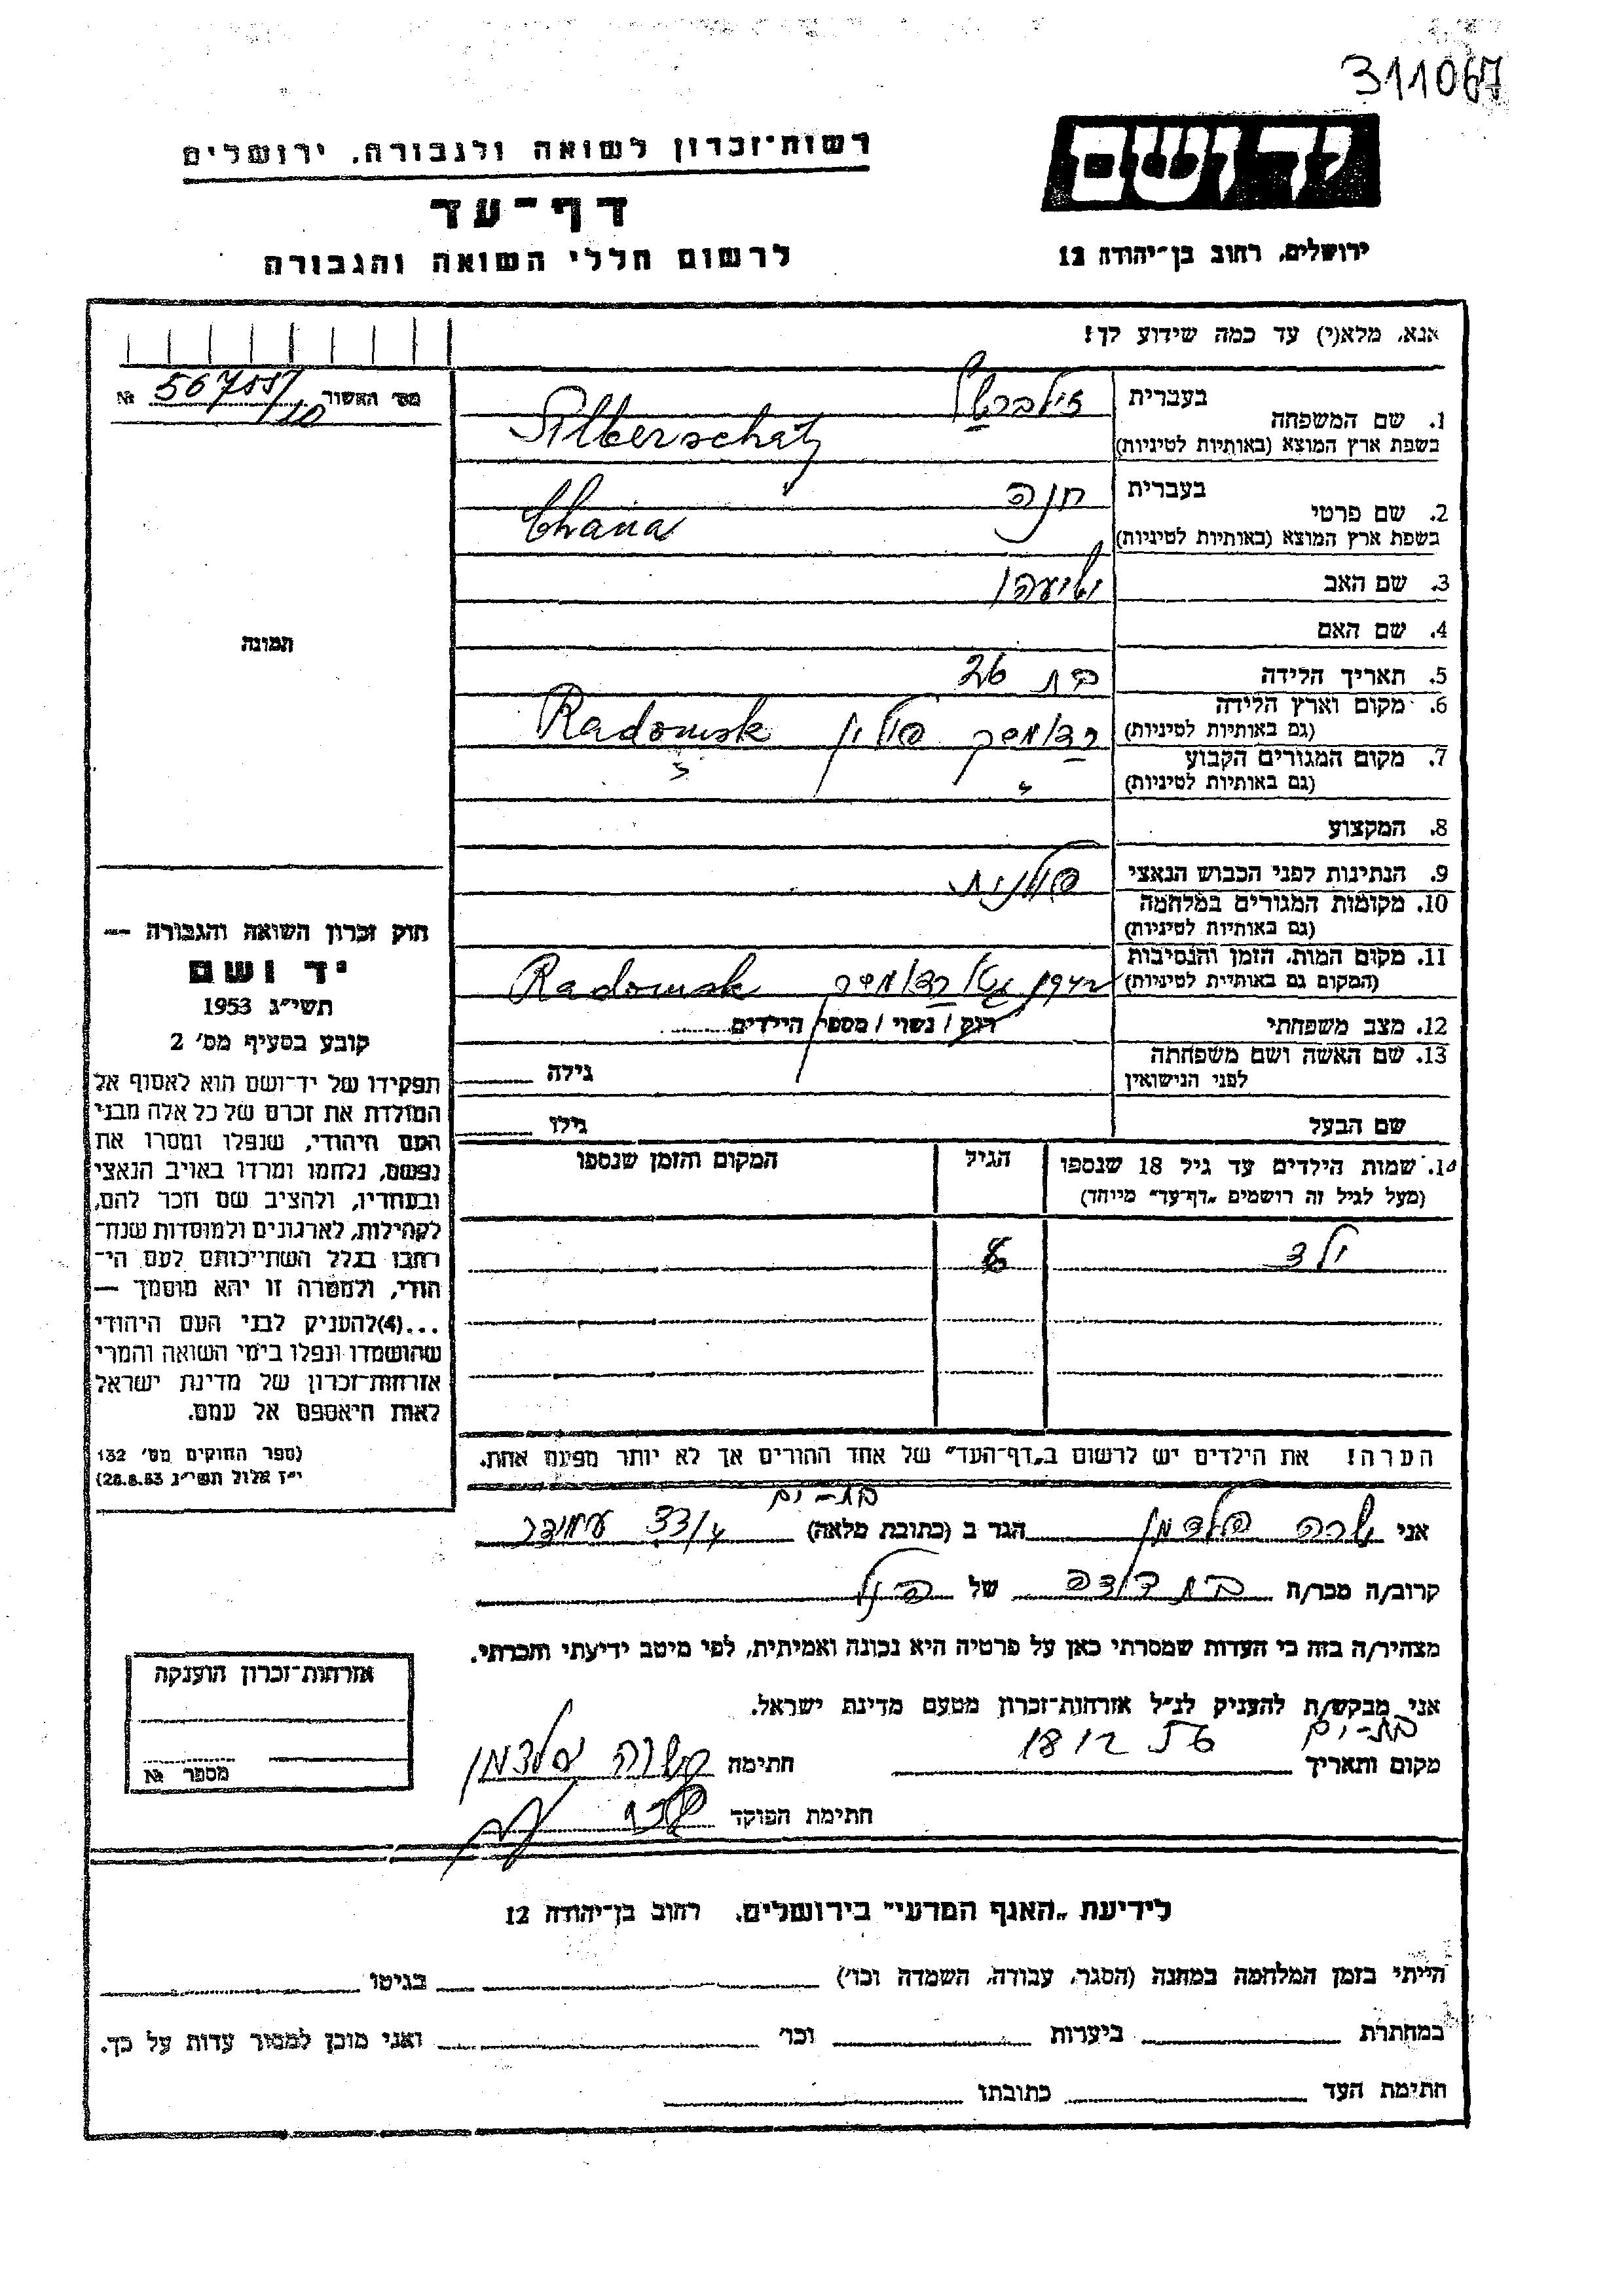 311067
יד ושם
רשות־זכרון לשואה ולגבורה, ירושלים
דף־עד
לרשום חללי השואה והגבורה
ירושלים, רחוב בן־יהודה 12
אנא, מלא(י) עד כמה שידוע לך!
מס׳ האשור № 567551/10
1. שם המשפחה
בעברית
Silberschatz
בשפת ארץ המוצא (באותיות לטיניות)
2. שם פרטי
בעברית חנה
Chana
בשפת ארץ המוצא (באותיות לטיניות)
3. שם האב ישעיהו
4. שם האם
5. תאריך הלידה בת 26
6. מקום וארץ הלידה
(גם באותיות לטיניות) רדומסק פולין Radomsk
7. מקום המגורים הקבוע
(גם באותיות לטיניות)
8. המקצוע
9. הנתינות לפני הכבוש הנאצי פולנית
10. מקומות המגורים במלחמה
(גם באותיות לטיניות)
11. מקום המות, הזמן והנסיבות
(המקום גם באותיות לטיניות) רדומסק Radomsk
12. מצב משפחתי רוק / נשוי / מספר הילדים
13. שם האשה ושם משפחתה
לפני הנישואין
גילה
שם הבעל גילו
14. שמות הילדים עד גיל 18 שנספו
(מעל לגיל זה רושמים „דף־עד״ מיוחד)
הגיל
המקום והזמן שנספו
ילד 8
הערה! את הילדים יש לרשום ב„דף־העד״ של אחד ההורים אך לא יותר מפעם אחת.
תמונה
חוק זכרון השואה והגבורה —
יד ושם
תשי״ג 1953
קובע בסעיף מס׳ 2
תפקידו של יד־ושם הוא לאסוף אל
המולדת את זכרם של כל אלה מבני
העם היהודי, שנפלו ומסרו את
נפשם, נלחמו ומרדו באויב הנאצי
ובעוזריו, ולהציב שם וזכר להם,
לקהילות, לארגונים ולמוסדות שנח־
רבו בגלל השתייכותם לעם הי־
הודי, ולמטרה זו יהא מוסמך —
...(4) להעניק לבני העם היהודי
שהושמדו ונפלו בימי השואה והמרי
אזרחות־זכרון של מדינת ישראל
לאות היאספם אל עמם.
(ספר החוקים מס׳ 132
י״ז אלול תשי״ג 28.8.53)
בת־ים
אני שרה פלדמן הגר ב (כתובת מלאה) 33/4 עמידר
קרוב/ה מכר/ה בת דודה של הנ״ל
מצהיר/ה בזה כי העדות שמסרתי כאן על פרטיה היא נכונה ואמיתית, לפי מיטב ידיעתי והכרתי.
אני מבקש/ת להעניק לנ״ל אזרחות־זכרון מטעם מדינת ישראל.
מקום ותאריך בת־ים 18 12 56 חתימה שרה פלדמן
חתימת הפוקד
אזרחות־זכרון הוענקה
מספר №
לידיעת „האגף המדעי״ בירושלים, רחוב בן־יהודה 12
הייתי בזמן המלחמה במחנה (הסגר, עבודה, השמדה וכו׳) בגיטו
במחתרת ביערות וכו׳ ואני מוכן למסור עדות על כך.
חתימת העד כתובתו